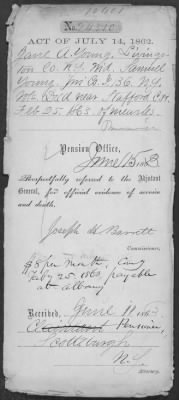 No. 24510
ACT OF JULY 14, 1862.
A. Young, Living-
ton Co. N.Y. Wid. Samuel
Young, Co. I, 136. N.Y.
Vols. Died near Stafford C.H.
Feb 25. 1863 of
Pension Office,
June 8. 1863
Respectfully referred to the Adjutant
General, for official evidence of service
and death.
Joseph H Barrett
Commissioner.
$8 per month Comg
Feby 25. 1863, payable
at Albany
Received, June 11 1863
Pensioner,
Scottsburgh
N.Y.
Attorney.